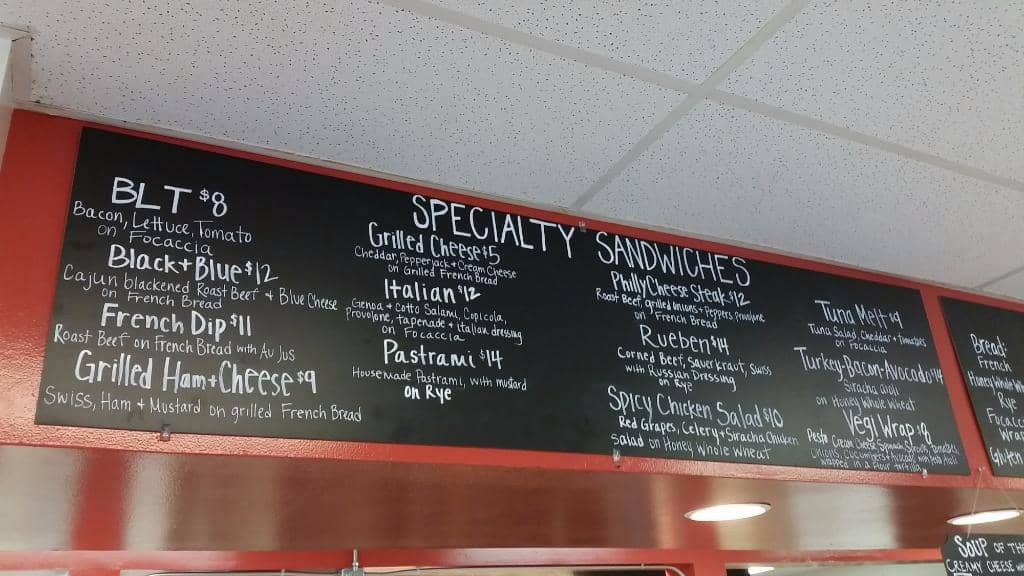 SPECIALTY SANDWICHES
BLT $8
Bacon, Lettuce, Tomato
on Focaccia
Black + Blue $12
Cajun blackened Roast Beef + Blue Cheese
on French Bread
French Dip $11
Roast Beef on French Bread with Au Jus
Grilled Ham + Cheese $9
Swiss, Ham + Mustard on grilled French Bread
Grilled Cheese $5
Cheddar, Pepperjack + Cream Cheese
on Grilled French Bread
Italian $12
Genoa + Cotto Salami, Copicola,
Provolone, tapenade + italian dressing
on Focaccia
Pastrami $14
Housemade Pastrami, with mustard
on Rye
Philly Cheese Steak $12
Roast Beef, grilled onions + Peppers, provolone
on French Bread
Rueben $14
Corned Beef, Sauerkraut, Swiss
with Russian Dressing
on Rye
Spicy Chicken Salad $10
Red grapes, Celery + Siracha Chicken
Salad on Honey Whole Wheat
Tuna Melt $9
Tuna Salad, Cheddar + Tomatoes
on Focaccia
Turkey-Bacon-Avocado $14
Siracha aioli
on Honey Whole Wheat
Vegi Wrap $8
Pesto Cream Cheese, Spinach, Sprouts, tomatoes
onions, Cucumbers
wrapped in a flour tortilla
Bread:
French
Honey Whole Wh
Rye
Focacc
Wrap
Gluten
SOUP OF TH
CREAMY CHEESE